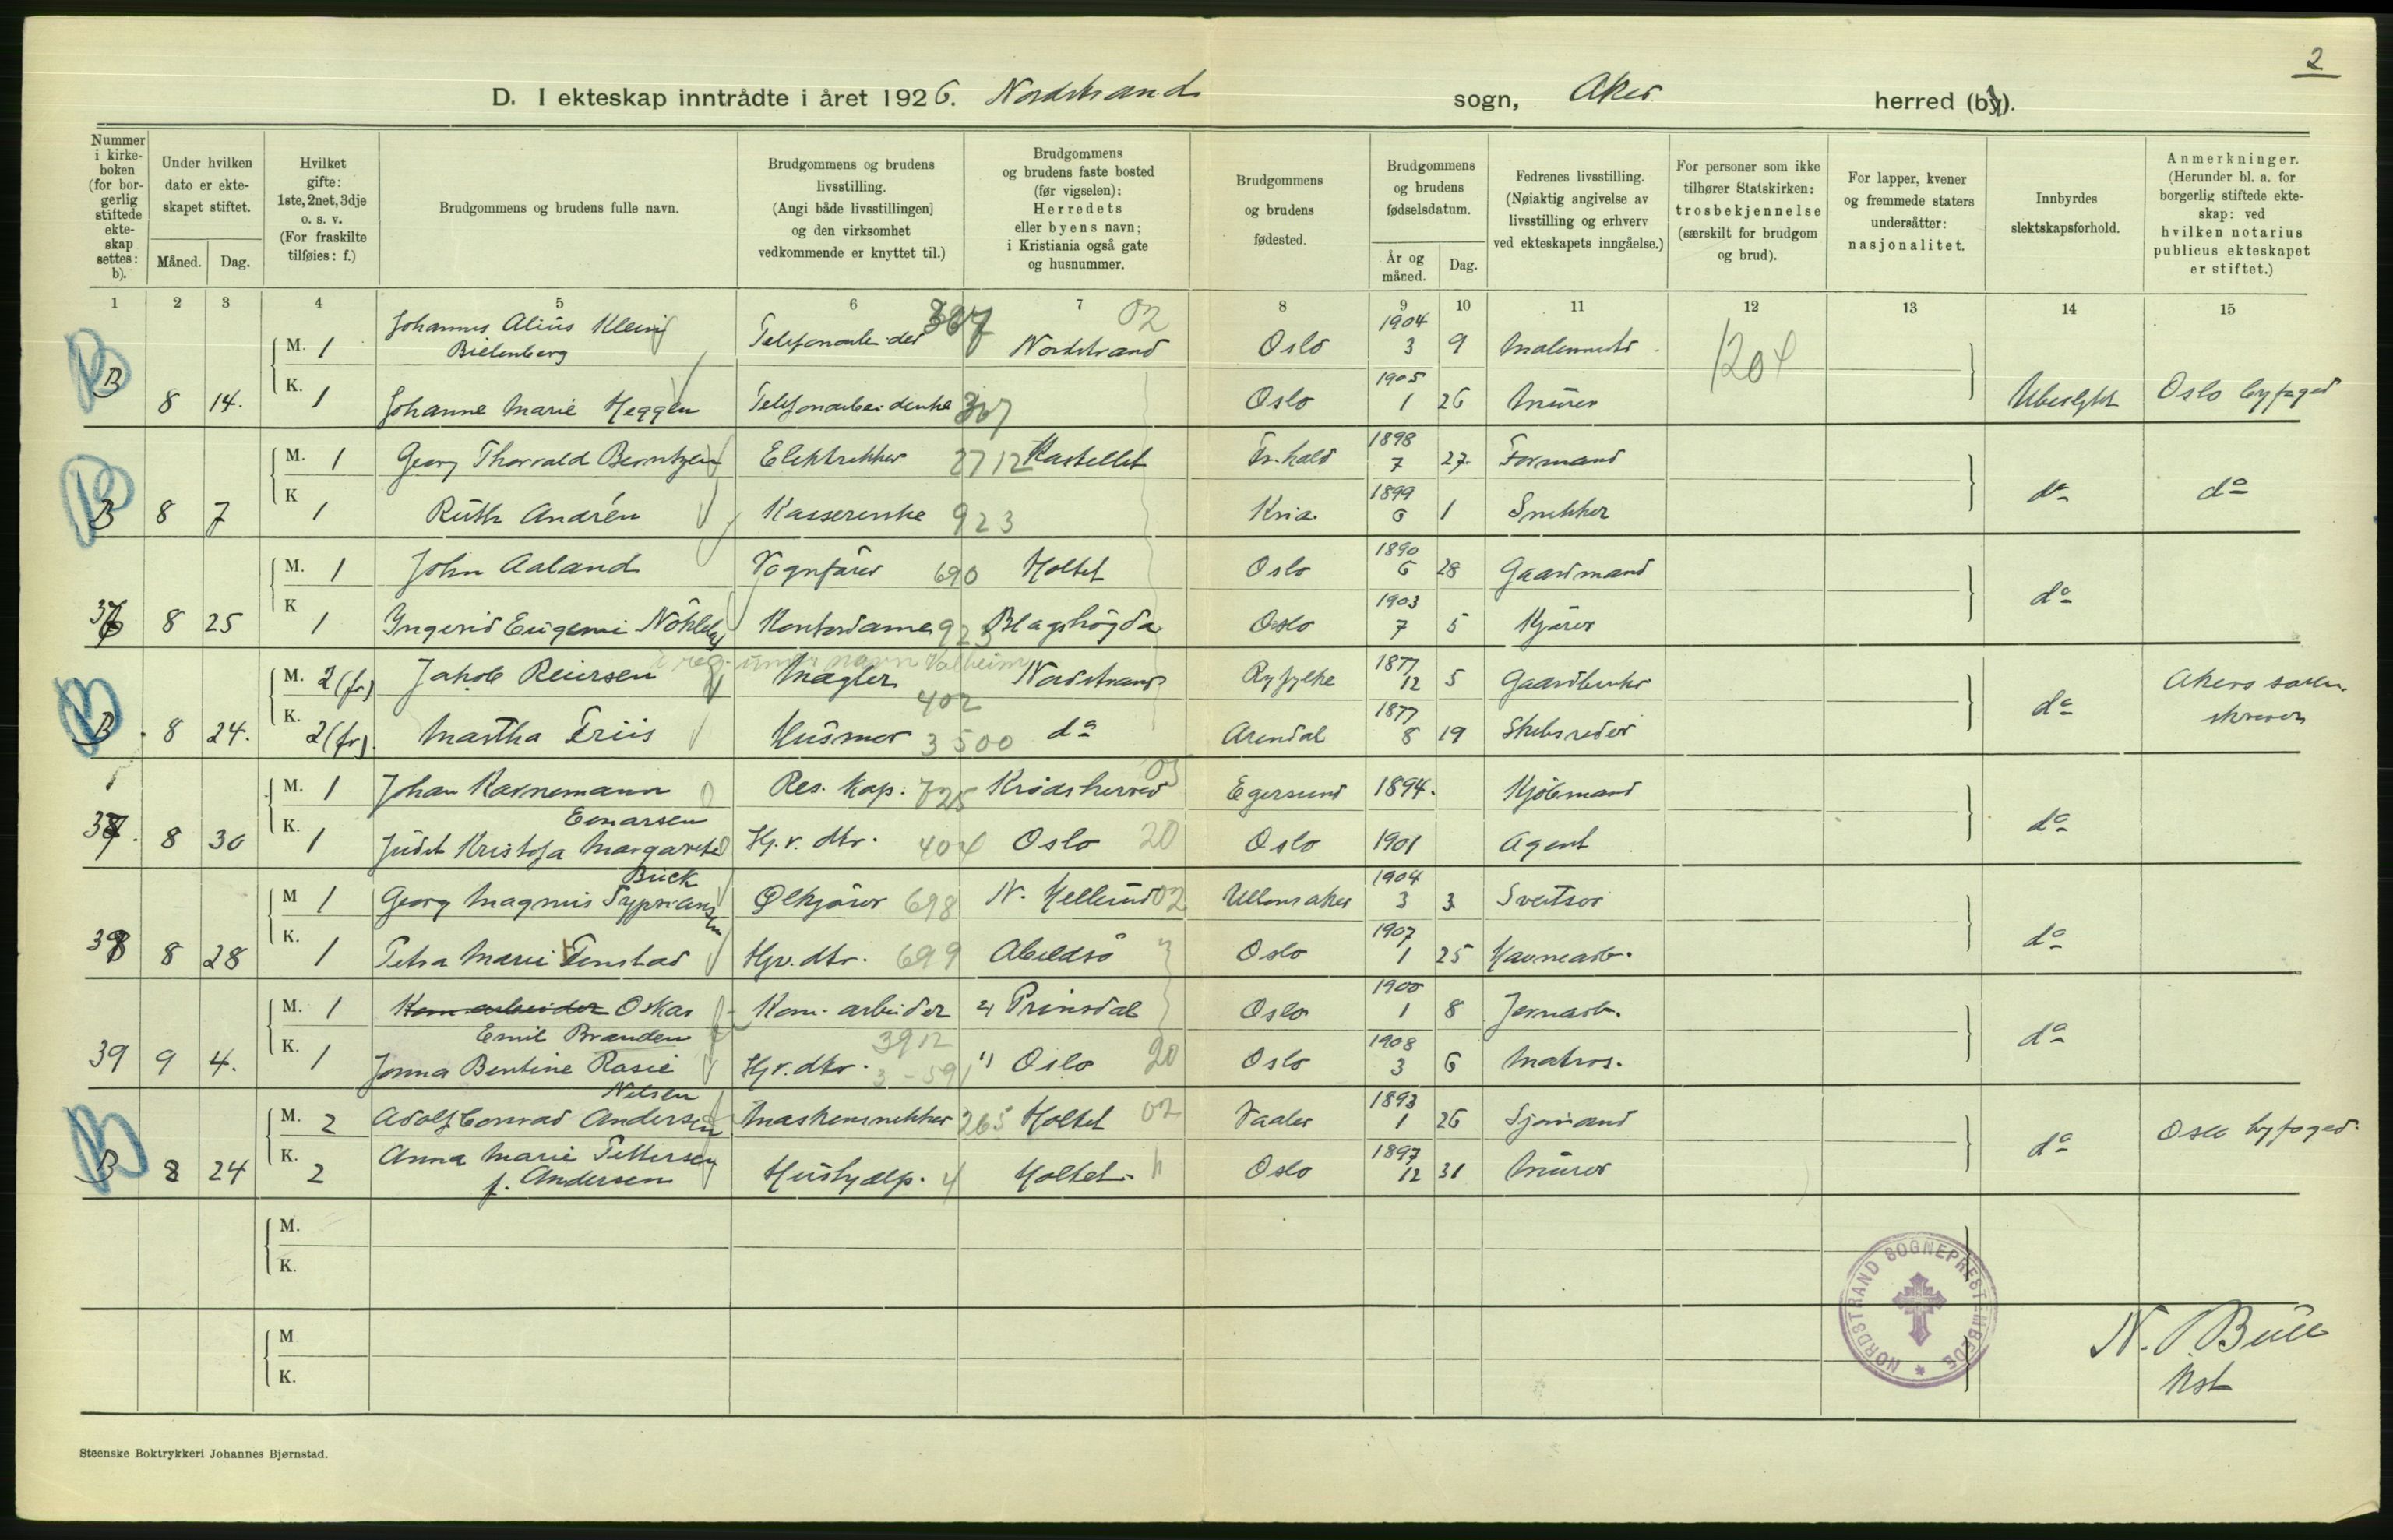 2
D. I ekteskap inntrådte i året 1926. Nordstrand sogn, Aker herred (by).
Nummer i kirkeboken (for borgerlig stiftede ekteskap settes: b).
Under hvilken dato er ekteskapet stiftet.
Måned. Dag.
Hvilket gifte: 1ste, 2net, 3dje o. s. v. (For fraskilte tilføies: f.)
Brudgommens og brudens fulle navn.
Brudgommens og brudens livsstilling. (Angi både livsstillingen] og den virksomhet vedkommende er knyttet til.)
Brudgommens og brudens faste bosted (før vigselen): Herredets eller byens navn; i Kristiania også gate og husnummer.
Brudgommens og brudens fødested.
Brudgommens og brudens fødselsdatum.
År og måned. Dag.
Fedrenes livsstilling. (Nøiaktig angivelse av livsstilling og erhverv ved ekteskapets inngåelse.)
For personer som ikke tilhører Statskirken: trosbekjennelse (særskilt for brudgom og brud).
For lapper, kvener og fremmede staters undersåtter: nasjonalitet.
Innbyrdes slektskapsforhold.
Anmerkninger. (Herunder bl. a. for borgerlig stiftede ekteskap: ved hvilken notarius publicus ekteskapet er stiftet.)
1 2 3 4 5 6 7 8 9 10 11 12 13 14 15
M. 1 Johannes Alius Klein Bielenberg Telefonarbeider 367 Nordstrand 02 Oslo 1904 3 9 Malermester 1204
B 8 14. K. 1 Johanne Marie Heggen Telefonarbeiderske 367 Oslo 1905 1 26 Murer Ubeslgtet Oslo byfoged
M. 1 Georg Thorvald Berntzen Elektrikker 2712 Kastellet Fr.hald 1898 7 27 Formand
B 8 7 K 1 Ruth Andrén Kassererske 923 Kria. 1899 6 1 Snekker do do
M. 1 John Aaland Vognfører 690 Holtet Oslo 1890 6 28 Gaardmand
36 8 25 K 1 Ingerid Eugenie Kontordame 923 Oslo 1903 7 5 Kjører do
M. 2 (fr.) Jakob Reiersen reg. under navn Valheim Mægler 402 Nordstrand Ryfylke 1877 12 5 Gaardbruker
B 8 24. K. 2 (fr). Martha Friis Husmor 3500 do Arendal 1877 8 19 Skibsreder do Akers soren- skriver
M. 1 Johan Kornemann Res. Kap. 725 Krødsherred 03 Egersund 1894. Kjøbmand
37. 8 30 K. 1 Judit Kristofa Margarethe Einarsen Hj. v. dtr. 404 Oslo 20 Oslo 1901 Agent do
M 1 Georg Magnus Sypriansen Buck Ølkjører 698 N. Hellerud 02 Ullensaker 1904 3 3 Sveitser
38 8 28 K. 1 Petra Marie Tenstad Hjv. dtr. 699 Abildsø Oslo 1907 1 25 Havnearb. do
M. 1 Kom arbeider Oskar Emil Branden Kom. arbeider 4 Prinsdal Oslo 1900 1 8 Jernarb.
39 9 4. K. 1 Jonna Bentine Rosie Nilsen Hjv. dtr. 3912 Oslo 20 Oslo 1908 3 6 Matros. do
M. 2 Adolf Conrad Andersen Maskinsnekker 265 Holtet 02 Vaaler 1893 1 26 Sjømand
B 8 24 K. 2 Anna Marie Pettersen f. Andersen Hushjælp. 4 Holtet " Oslo 1897 12 31 Murer do Oslo byfoged.
M.
K.
M
K.
NORDSTRAND SOGNEPRESTEMBEDE
N. Bull
Kst
Steenske Boktrykkeri Johannes Bjørnstad.